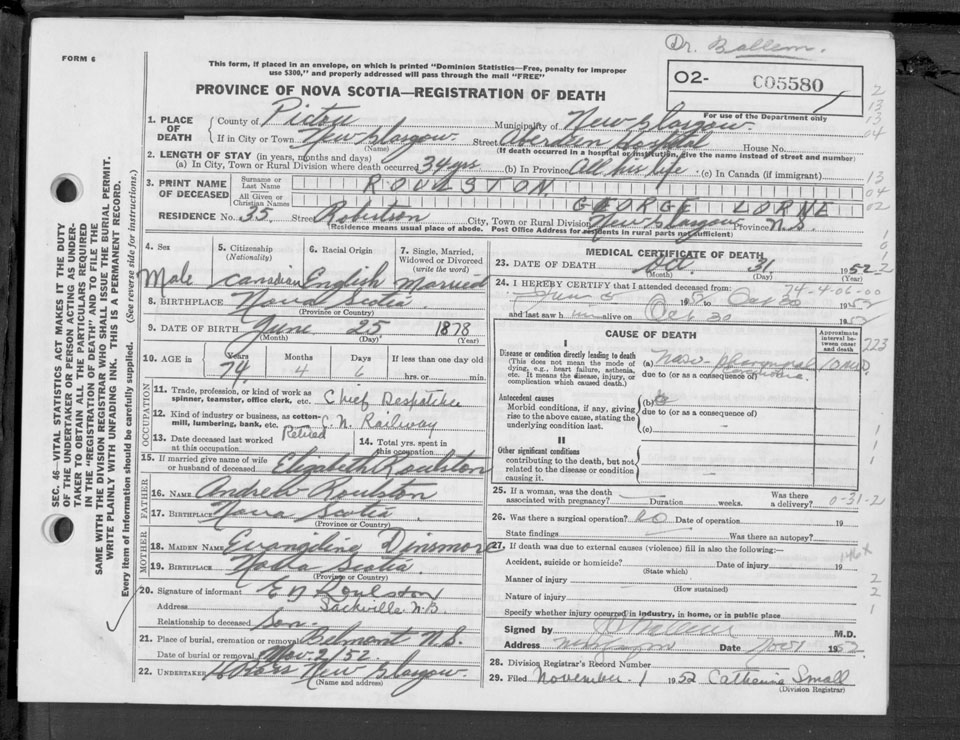 Dr. Ballem.
FORM 6
This form, if placed in an envelope, on which is printed "Dominion Statistics—Free, penalty for improper
use $300," and properly addressed will pass through the mail "FREE"
O2- C05580
For use of the Department only
PROVINCE OF NOVA SCOTIA—REGISTRATION OF DEATH
1. PLACE OF DEATH County of Pictou Municipality of New Glasgow
If in City or Town New Glasgow. Street Aberdeen Hospital House No.
(Name) (If death occurred in a hospital or institution, give the name instead of street and number)
2. LENGTH OF STAY (in years, months and days)
(a) In City, Town or Rural Division where death occurred 34 yrs (b) In Province All his life (c) In Canada (if immigrant)
3. PRINT NAME OF DECEASED Surname or Last Name ROULSTON
All Given or Christian Names GEORGE LORNE
RESIDENCE No. 35. Street Robertson City, Town or Rural Division New Glasgow Province N.S.
(Residence means usual place of abode. Post Office Address for residents in rural parts not sufficient)
4. Sex 5. Citizenship (Nationality) 6. Racial Origin 7. Single, Married, Widowed or Divorced (write the word)
Male Canadian English Married
8. BIRTHPLACE Nova Scotia
(Province or Country)
9. DATE OF BIRTH June 25 1878
(Month) (Day) (Year)
10. AGE in Years Months Days If less than one day old
74 4 6 hrs. or min.
OCCUPATION
11. Trade, profession, or kind of work as
spinner, teamster, office clerk, etc. Chief Despatcher
12. Kind of industry or business, as cotton-
mill, lumbering, bank, etc. C. N. Railway
13. Date deceased last worked at this occupation Retired 14. Total yrs. spent in this occupation
15. If married give name of wife
or husband of deceased Elizabeth Roulston
FATHER
16. NAME Andrew Roulston
17. BIRTHPLACE Nova Scotia
(Province or Country)
MOTHER
18. MAIDEN NAME Evangiline Dinsmore
19. BIRTHPLACE Nova Scotia
(Province or Country)
20. Signature of informant Roulston
Address Sackville N.B.
Relationship to deceased Son.
21. Place of burial, cremation or removal Belmont N.S.
Date of burial or removal Nov. 2/52.
22. UNDERTAKER Ross New Glasgow.
(Name and address)
MEDICAL CERTIFICATE OF DEATH
23. DATE OF DEATH Oct. 31 1952
(Month) (Day)
24. I HEREBY CERTIFY that I attended deceased from:
74-4-06-00
June to Oct 30 1952
and last saw h im alive on Oct 30 1952
CAUSE OF DEATH
Approximate interval between onset and death
I
Disease or condition directly leading to death
(This does not mean the mode of
dying, e.g., heart failure, asthenia,
etc. It means the disease, injury, or
complication which caused death.)
(a) Naso-pharyngeal
due to (or as a consequence of)
Antecedent causes
Morbid conditions, if any, giving
rise to the above cause, stating the
underlying condition last.
(b)
due to (or as a consequence of)
(c)
II
Other significant conditions
contributing to the death, but not
related to the disease or condition
causing it.
25. If a woman, was the death
associated with pregnancy? Duration weeks. Was there a delivery? 0-31-2
26. Was there a surgical operation? no Date of operation 19
State findings Was there an autopsy?
27. If death was due to external causes (violence) fill in also the following:—
Accident, suicide or homicide? Date of injury 19
(State which)
Manner of injury
(How sustained)
Nature of injury
Specify whether injury occurred in industry, in home, or in public place
Signed by M.D.
Address Date Nov 1 1952
28. Division Registrar's Record Number
29. Filed November 1 1952 Catherine Small
(Division Registrar)
SEC. 46—VITAL STATISTICS ACT MAKES IT THE DUTY
OF THE UNDERTAKER OR PERSON ACTING AS UNDER-
TAKER TO OBTAIN ALL THE PARTICULARS REQUIRED
IN THE "REGISTRATION OF DEATH" AND TO FILE THE
SAME WITH THE DIVISION REGISTRAR WHO SHALL ISSUE THE BURIAL PERMIT.
WRITE PLAINLY WITH UNFADING INK. THIS IS A PERMANENT RECORD.
Every item of information should be carefully supplied. (See reverse side for instructions.)